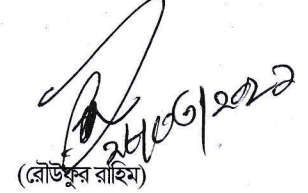 ২৮/০৩/২০২১
(রৌউফুর রাহিম)